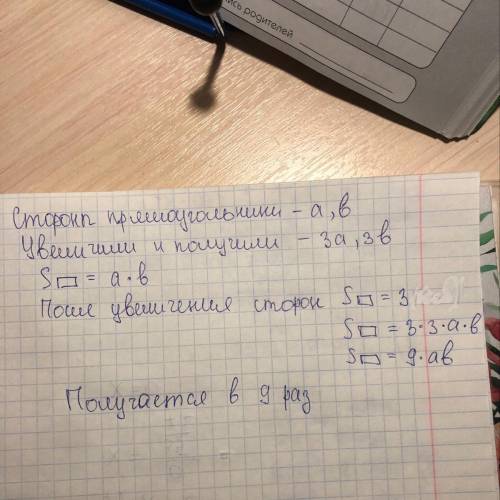 пись родителей
Стороны прямоугольники - a, b
Увеличили и получили - 3a, 3b
S▭ = a · b
После увеличения сторон S▭ = 3
S▭ = 3 · 3 · a · b
S▭ = 9 · ab
Получается в 9 раз